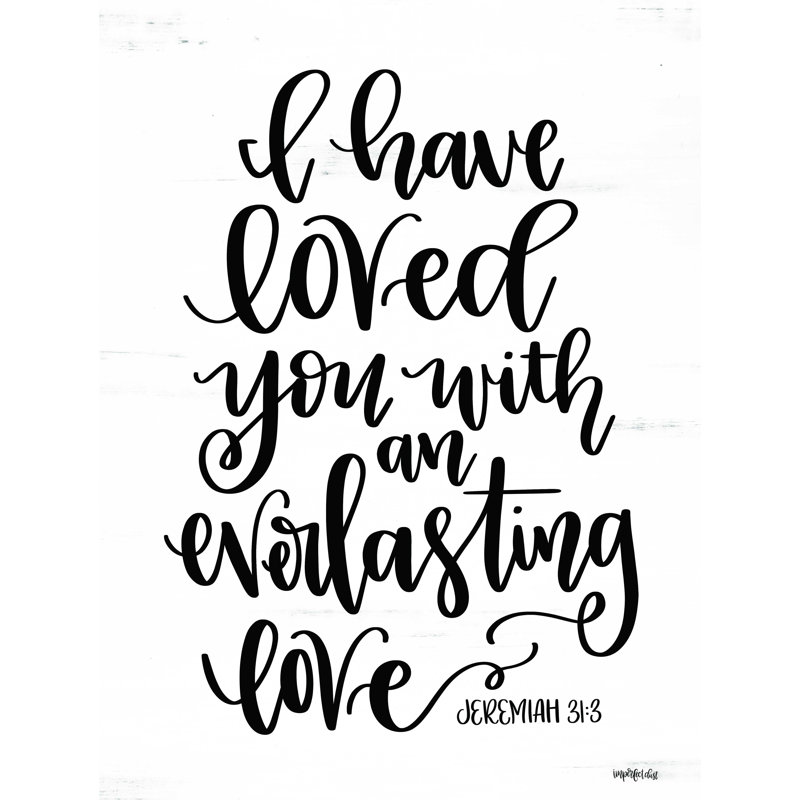 I have
loved
you with
an
everlasting
love
JEREMIAH 31:3
imperfect dust